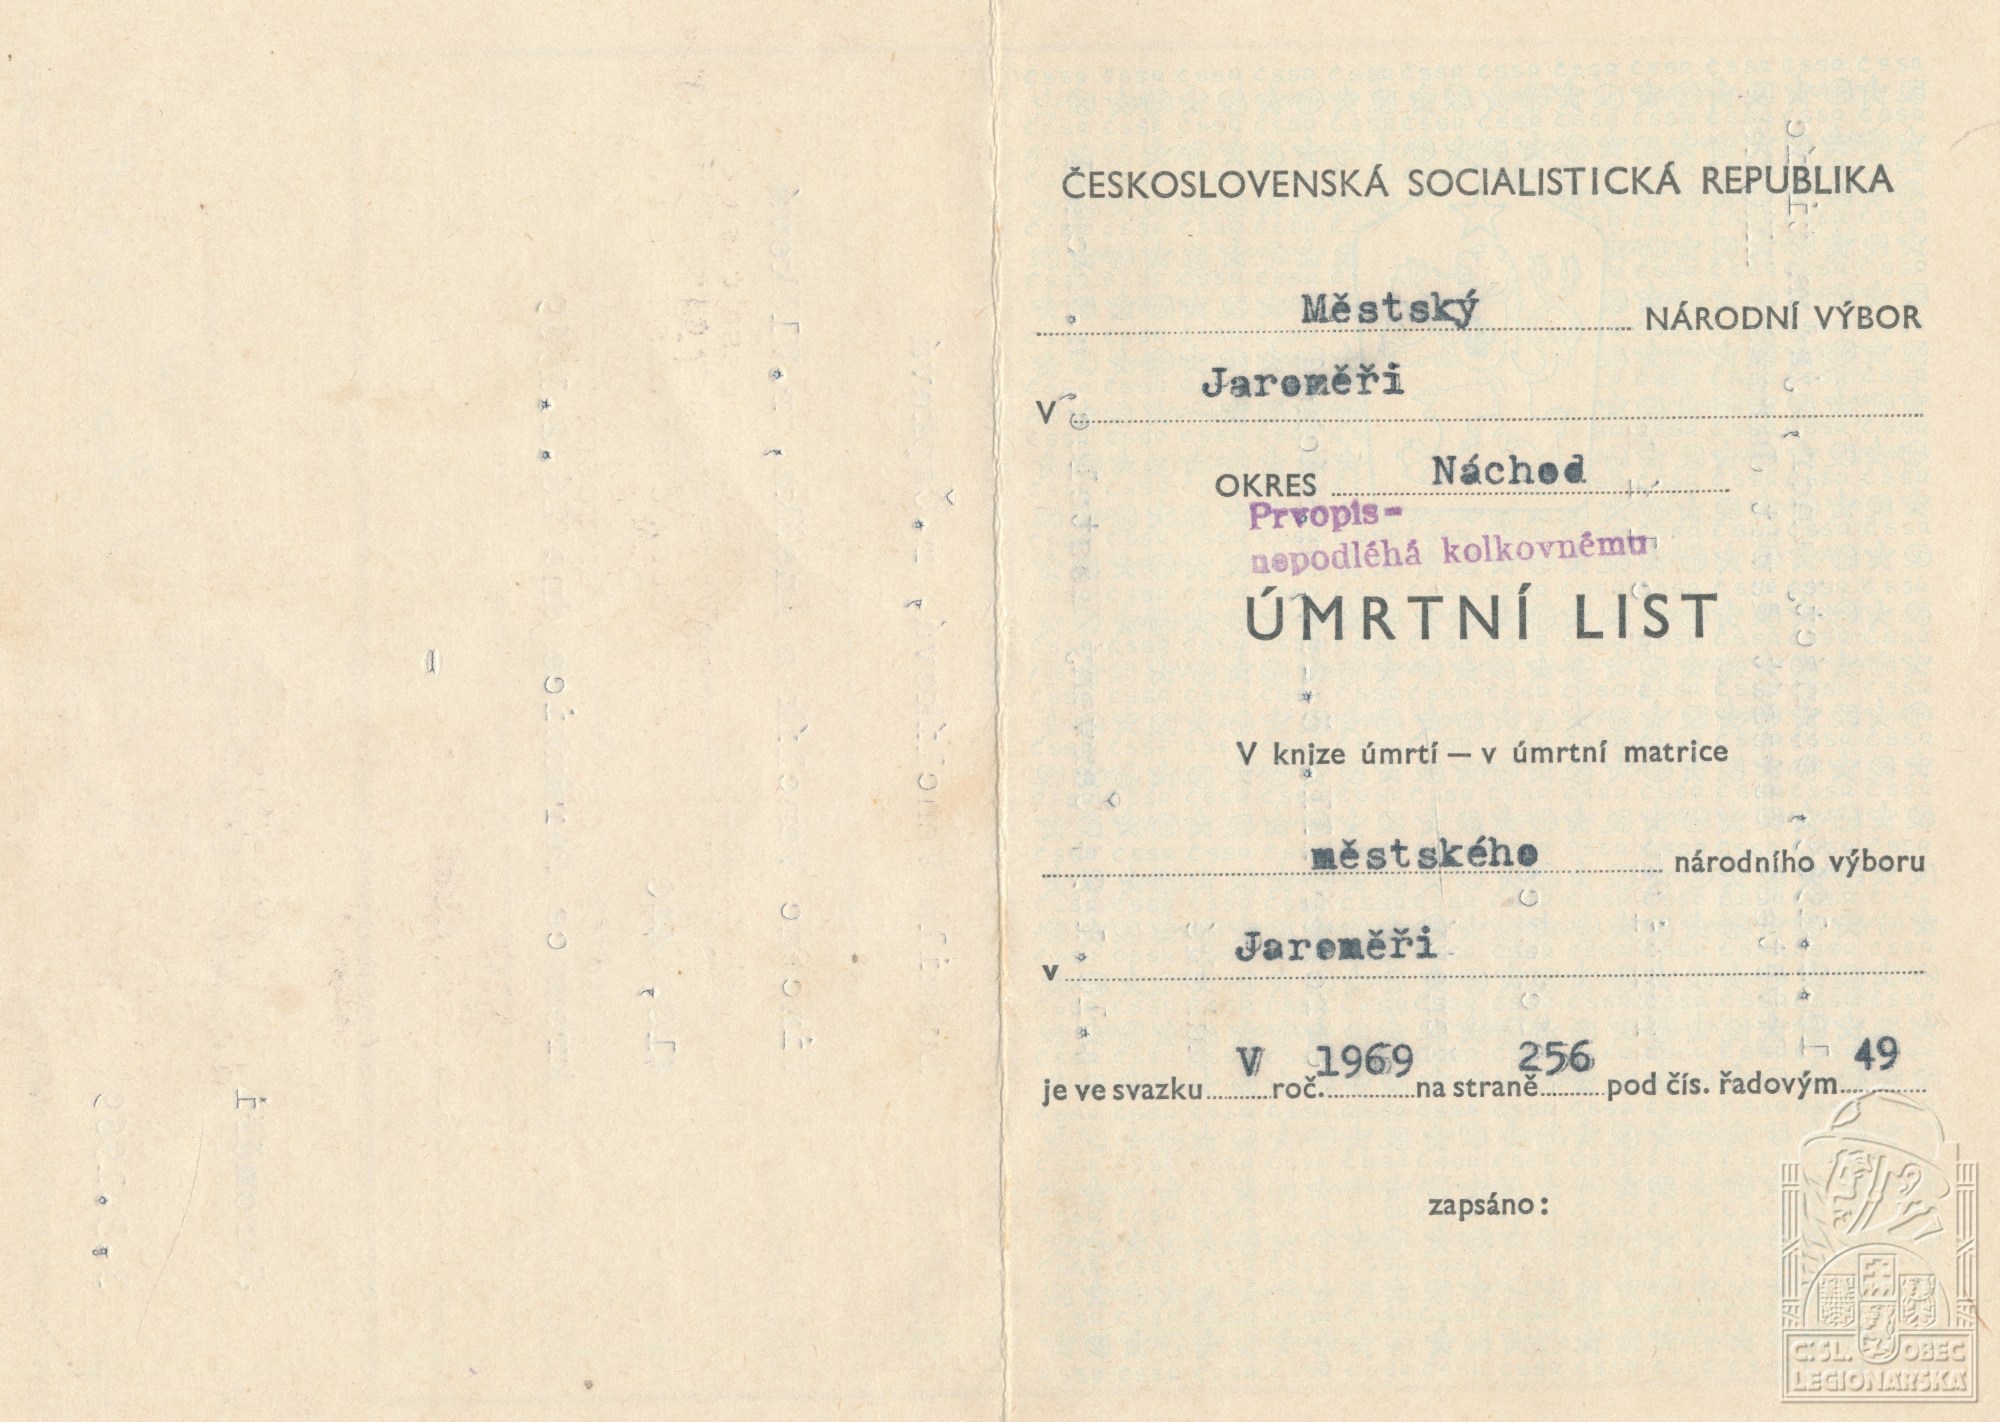 ČESKOSLOVENSKÁ SOCIALISTICKÁ REPUBLIKA
Městský NÁRODNÍ VÝBOR
V Jaroměři
OKRES Náchod
Prvopis-
nepodléhá kolkovnému
ÚMRTNÍ LIST
V knize úmrtí — v úmrtní matrice
městského národního výboru
v Jaroměři
je ve svazku V roč. 1969 na straně 256 pod čís. řadovým 49
zapsáno:
Č.SL. OBEC
LEGIONÁŘSKÁ